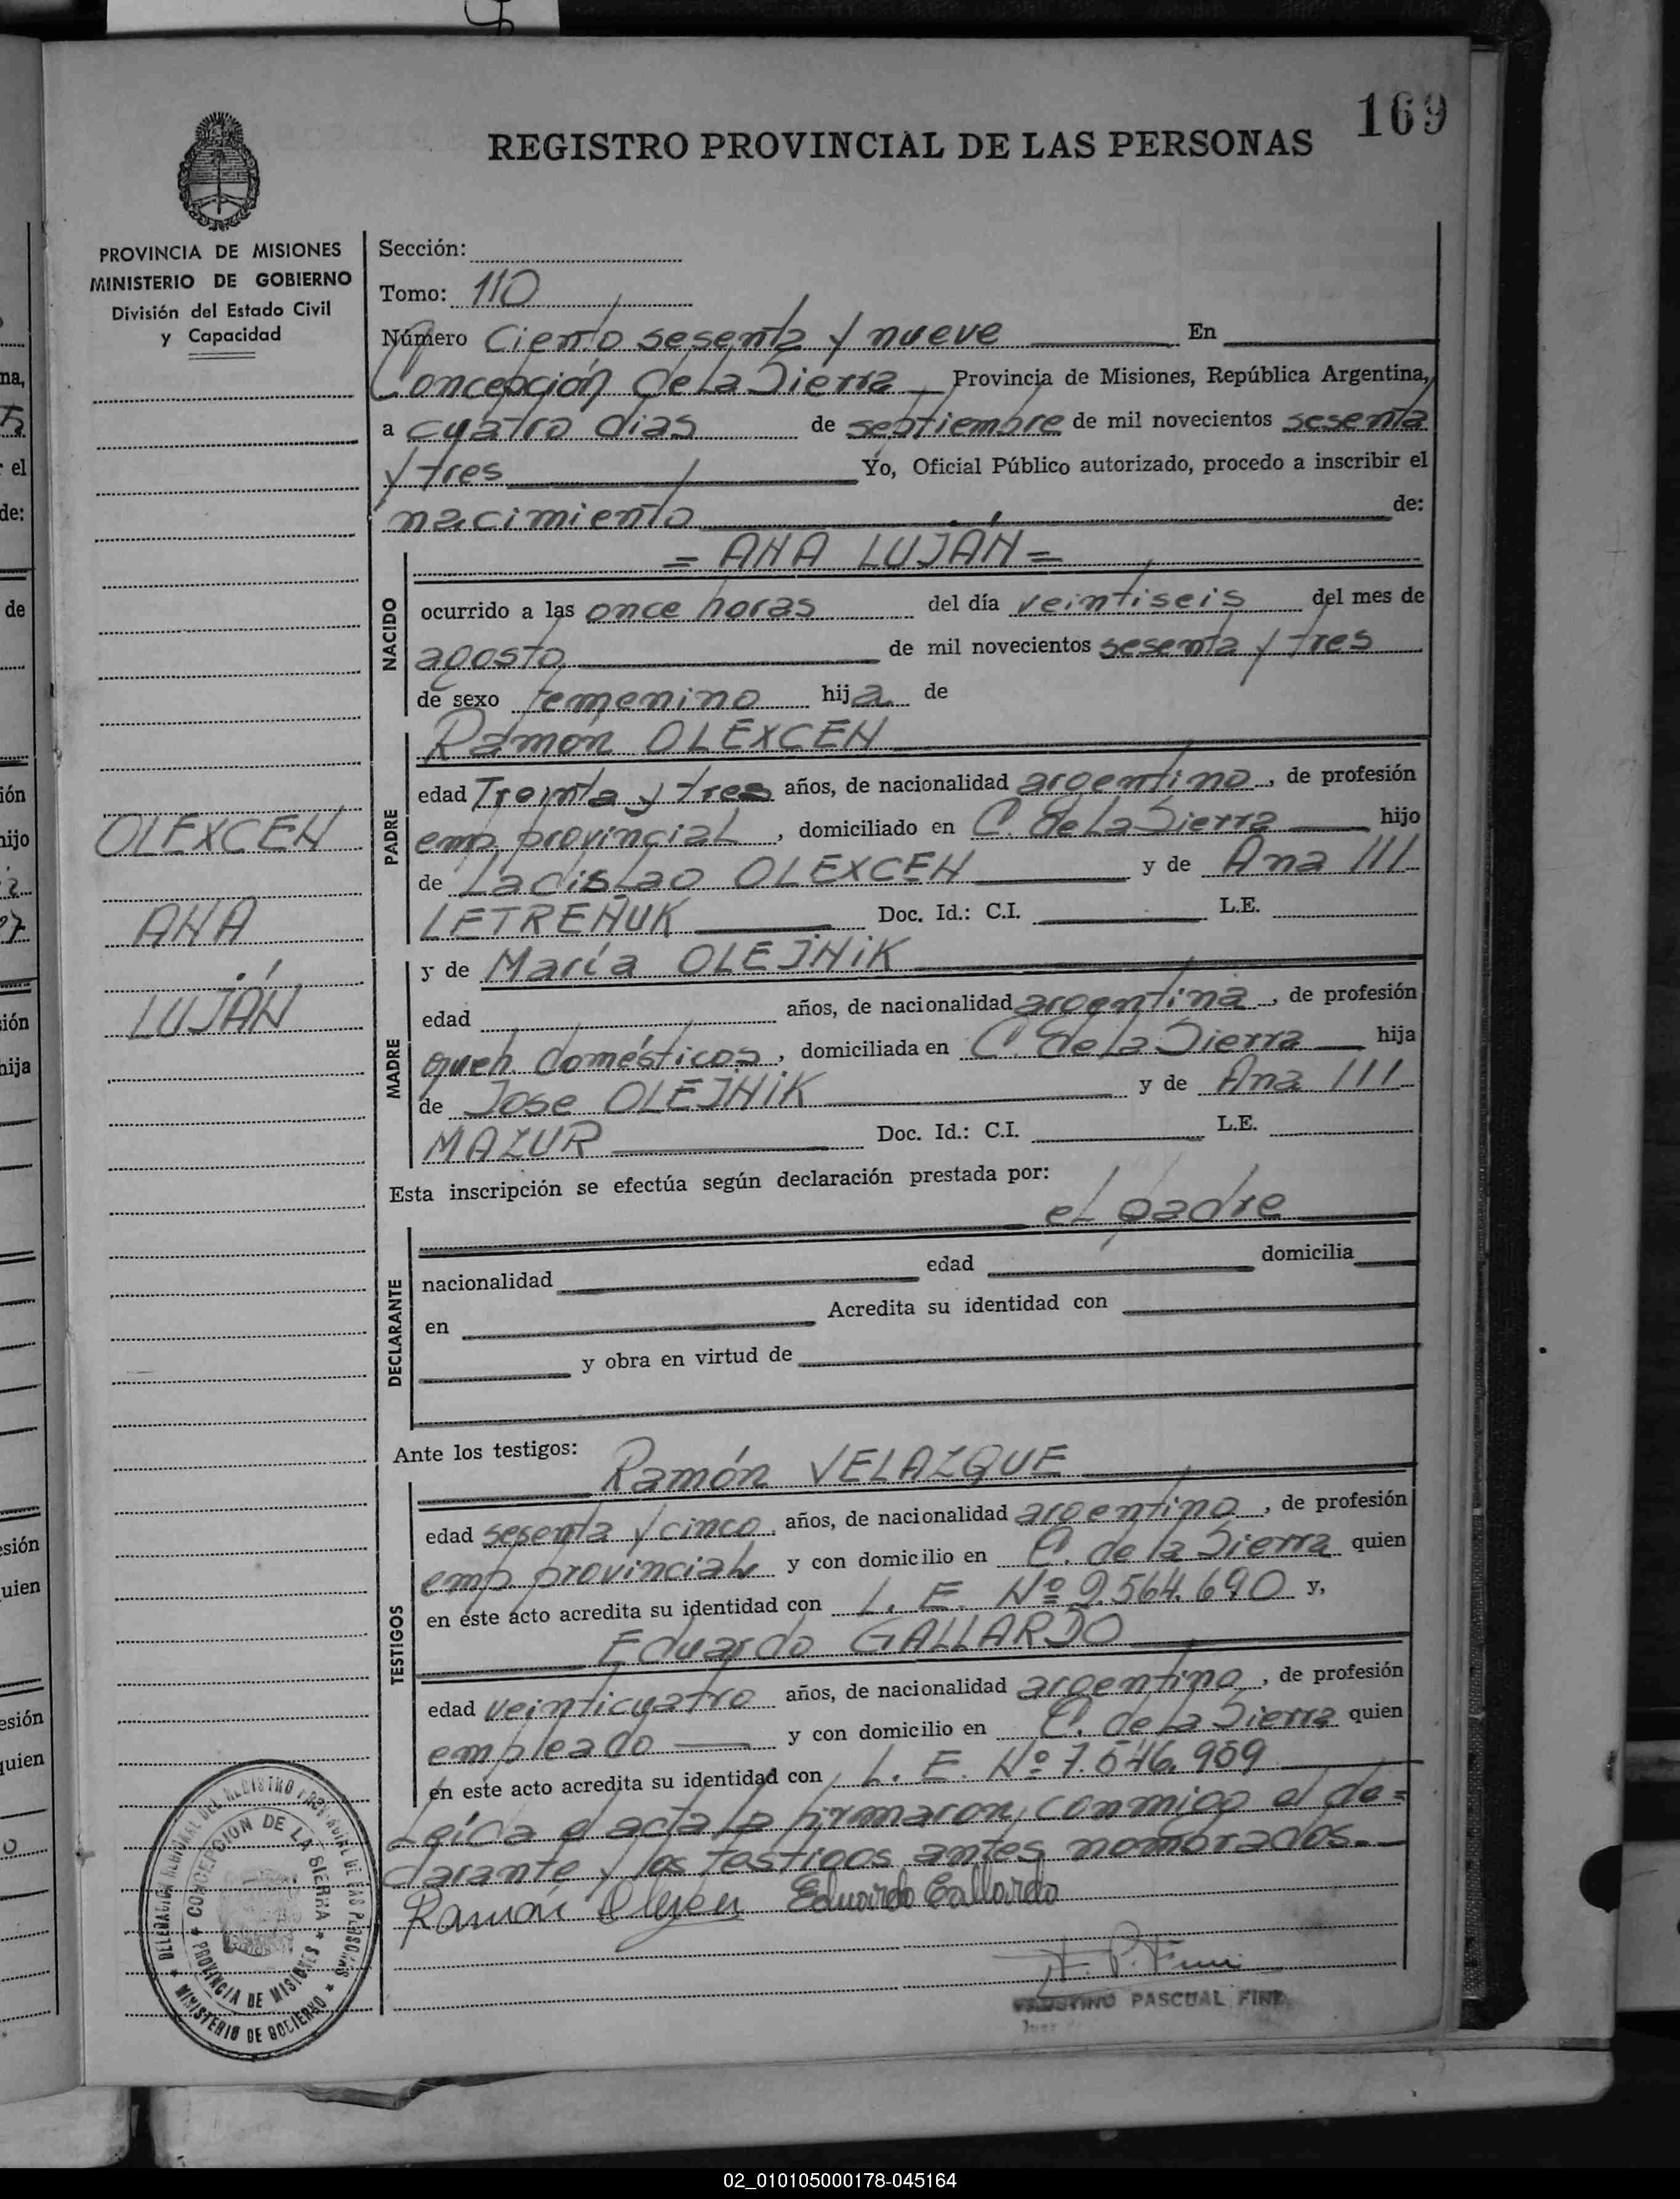 169
REGISTRO PROVINCIAL DE LAS PERSONAS
PROVINCIA DE MISIONES
MINISTERIO DE GOBIERNO
División del Estado Civil
y Capacidad
Sección:
Tomo: 110
Número Ciento sesenta y nueve En
Concepción de la Sierra Provincia de Misiones, República Argentina,
a cuatro días de septiembre de mil novecientos sesenta
y tres Yo, Oficial Público autorizado, procedo a inscribir el
nacimiento de:
= ANA LUJÁN =
NACIDO
ocurrido a las once horas del día veintiseis del mes de
agosto de mil novecientos sesenta y tres
de sexo femenino hija de
Ramón OLEXCEN
PADRE
edad Treinta y tres años, de nacionalidad argentino, de profesión
emp. provincial, domiciliado en C. de La Sierra hijo
de Ladislao OLEXCEN y de Ana III
LETREÑUK Doc. Id.: C.I. L.E.
OLEXCEN
ANA
LUJÁN
MADRE
y de María OLEJNiK
edad años, de nacionalidad argentina, de profesión
queh. domésticos, domiciliada en C. de La Sierra hija
de Jose OLEJNiK y de Ana III
MAZUR Doc. Id.: C.I. L.E.
Esta inscripción se efectúa según declaración prestada por:
el padre
DECLARANTE
nacionalidad edad domicilia
en Acredita su identidad con
y obra en virtud de
Ante los testigos:
Ramón VELAZQUE
TESTIGOS
edad sesenta y cinco, años, de nacionalidad argentino, de profesión
emp. provincial y con domicilio en C. de la Sierra quien
en este acto acredita su identidad con L. E. Nº 2.564.690 y,
Eduardo GALLARDO
edad veinticuatro años, de nacionalidad argentino, de profesión
empleado y con domicilio en C. de La Sierra quien
en este acto acredita su identidad con L. E. Nº 7.546.959
Leída el acta la firmaron, conmigo el de=
clarante y los testigos antes nombrados.-
Ramón Eduardo Gallardo
DELEGACION REGIONAL DEL REGISTRO PROVINCIAL DE LAS PERSONAS
CONCEPCION DE LA SIERRA
PROVINCIA DE MISIONES
MINISTERIO DE GOBIERNO
FAUSTINO PASCUAL
02_010105000178-045164